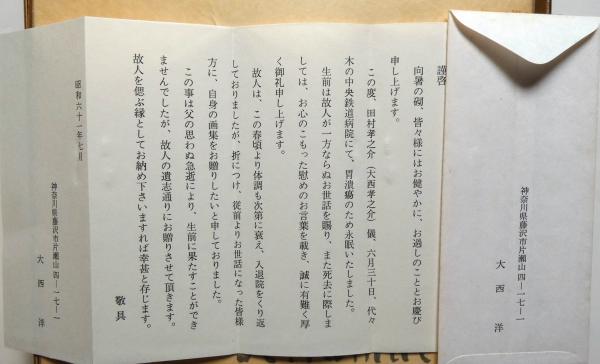 謹啓
向暑の砌、皆々様にはお健やかに、お過しのこととお慶び
申し上げます。
この度、田村孝之介（大西孝之介）儀、六月三十日、代々
木の中央鉄道病院にて、胃潰瘍のため永眠いたしました。
生前は故人が一方ならぬお世話を賜り、また死去に際しま
しては、お心のこもった慰めのお言葉を戴き、誠に有難く厚
く御礼申し上げます。
故人は、この春頃より体調も次第に衰え、入退院をくり返
しておりましたが、折につけ、従前よりお世話になった皆様
方に、自身の画集をお贈りしたいと申しておりました。
この事は父の思わぬ急逝により、生前に果たすことができ
ませんでしたが、故人の遺志通りにお贈りさせて頂きます。
故人を偲ぶ縁としてお納め下さいますれば幸甚と存じます。
敬具
昭和六十一年七月
神奈川県藤沢市片瀬山四―一七―一
大西洋
神奈川県藤沢市片瀬山四―一七―一
大西洋